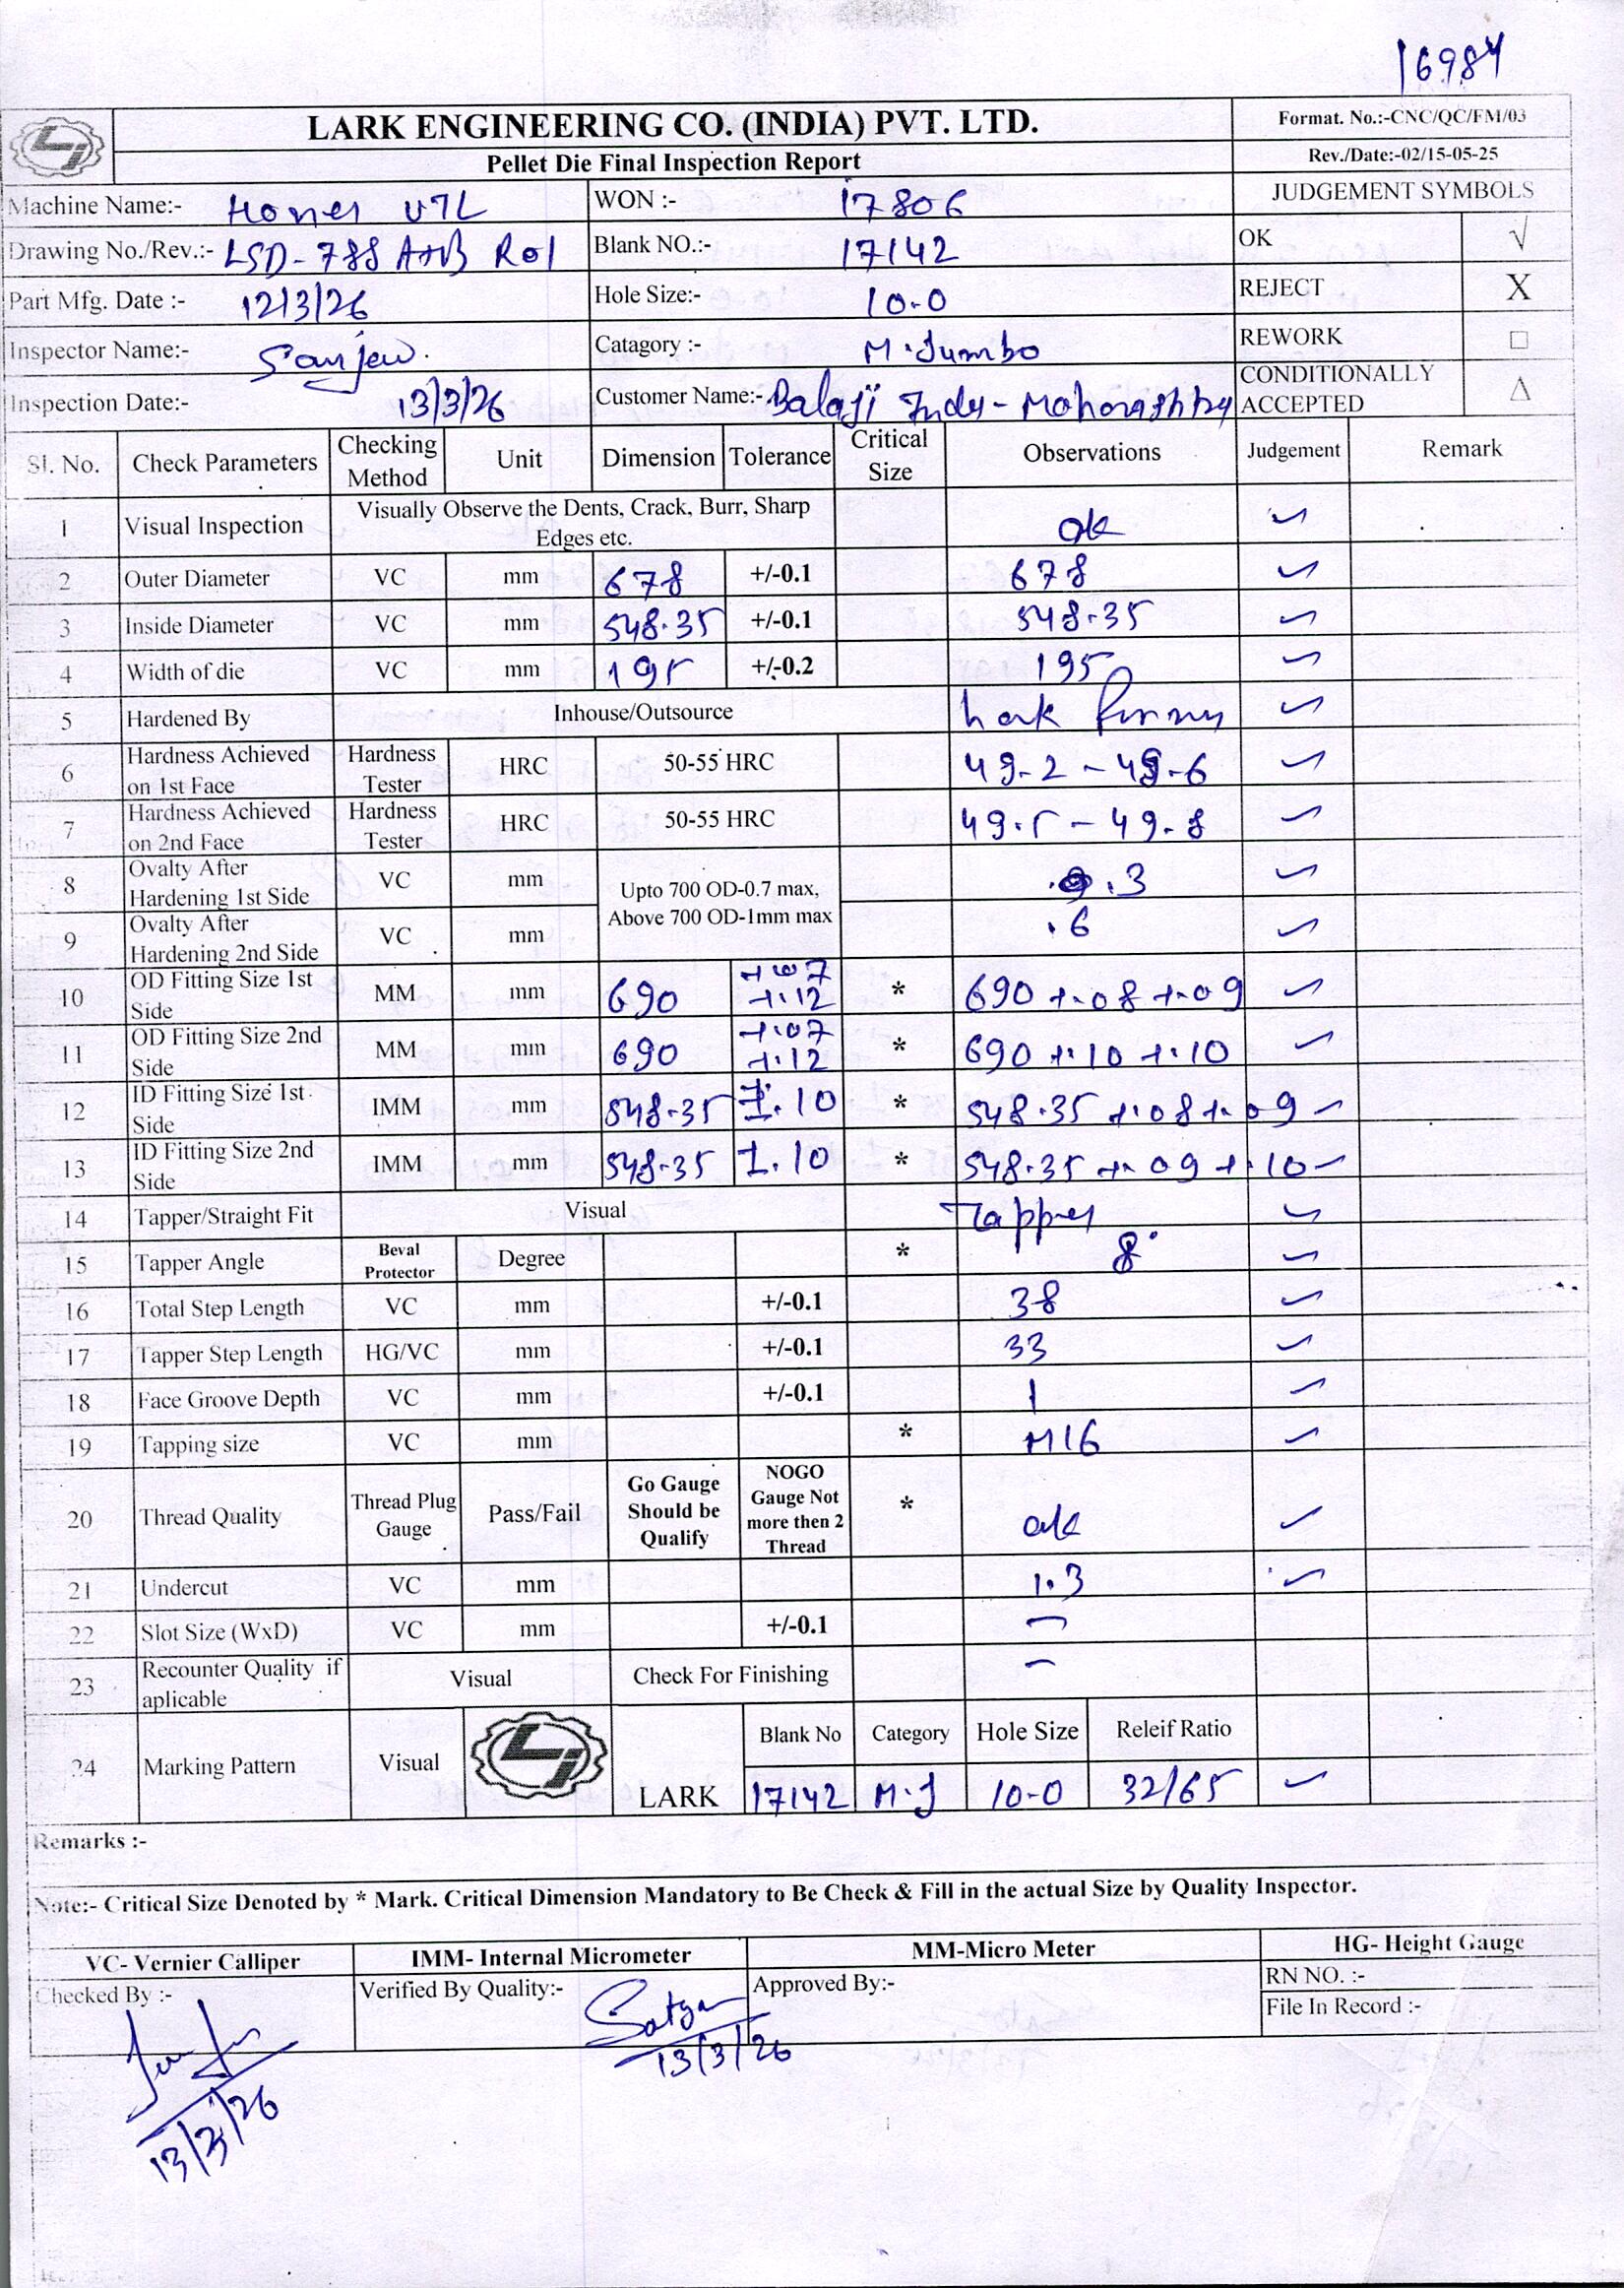 16984
LARK ENGINEERING CO. (INDIA) PVT. LTD.
Format. No.:-CNC/QC/FM/03
Pellet Die Final Inspection Report
Rev./Date:-02/15-05-25
Machine Name:- WON :- 17806 JUDGEMENT SYMBOLS
Drawing No./Rev.:- LSD-788 A+B R01 Blank NO.:- 17142 OK √
Part Mfg. Date :- 12/3/26 Hole Size:- 10-0 REJECT X
Inspector Name:- Sanjeev. Catagory :- M.Jumbo REWORK □
Inspection Date:- 13/3/26 Customer Name:- Balaji Inds- CONDITIONALLY ACCEPTED △
Sl. No. Check Parameters Checking Method Unit Dimension Tolerance Critical Size Observations Judgement Remark
1 Visual Inspection Visually Observe the Dents, Crack, Burr, Sharp Edges etc. ok ✓
2 Outer Diameter VC mm 678 +/-0.1 678 ✓
3 Inside Diameter VC mm 548.35 +/-0.1 548-35 ✓
4 Width of die VC mm 195 +/-0.2 195 ✓
5 Hardened By Inhouse/Outsource ✓
6 Hardness Achieved on 1st Face Hardness Tester HRC 50-55 HRC 49-2 - 49-6 ✓
7 Hardness Achieved on 2nd Face Hardness Tester HRC 50-55 HRC 49.5 - 49-8 ✓
8 Ovalty After Hardening 1st Side VC mm Upto 700 OD-0.7 max, Above 700 OD-1mm max .3 ✓
9 Ovalty After Hardening 2nd Side VC mm .6 ✓
10 OD Fitting Size 1st Side MM mm 690 +.07 +.12 * 690 +.08 +.09 ✓
11 OD Fitting Size 2nd Side MM mm 690 +.07 +.12 * 690 +.10 +.10 ✓
12 ID Fitting Size 1st Side IMM mm 548-35 ±.10 * 548.35 +.08 +.09 ✓
13 ID Fitting Size 2nd Side IMM mm 548-35 ±.10 * 548.35 +.09 +.10 ✓
14 Tapper/Straight Fit Visual Tapper ✓
15 Tapper Angle Beval Protector Degree * 8° ✓
16 Total Step Length VC mm +/-0.1 38 ✓
17 Tapper Step Length HG/VC mm +/-0.1 33 ✓
18 Face Groove Depth VC mm +/-0.1 1 ✓
19 Tapping size VC mm * M16 ✓
20 Thread Quality Thread Plug Gauge Pass/Fail Go Gauge Should be Qualify NOGO Gauge Not more then 2 Thread * ok ✓
21 Undercut VC mm 1.3 ✓
22 Slot Size (WxD) VC mm +/-0.1 —
23 Recounter Quality if aplicable Visual Check For Finishing —
24 Marking Pattern Visual LARK Blank No Category Hole Size Releif Ratio
17142 M.J 10-0 32/65 ✓
Remarks :-
Note:- Critical Size Denoted by * Mark. Critical Dimension Mandatory to Be Check & Fill in the actual Size by Quality Inspector.
VC- Vernier Calliper IMM- Internal Micrometer MM-Micro Meter HG- Height Gauge
Checked By :- Verified By Quality:- Satya Approved By:- RN NO. :-
File In Record :-
13/3/26
13/3/26